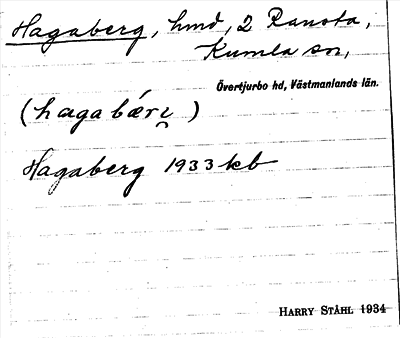 Hagaberg, hmd, 2 Ransta,
Kumla sn,
Övertjurbo hd, Västmanlands län.
(hagabærɪ̯)
Hagaberg 1933 kb
HARRY STÅHL 1934